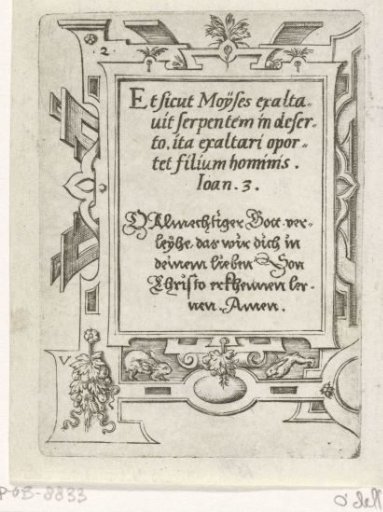 2
Et sicut Moÿses exalta-
uit serpentem in deser-
to, ita exaltari opor-
tet filium hominis.
Ioan. 3.
O Almechtiger Gott ver-
leyhe, das wir dich in
deinem lieben Son
Christo erkhennen ler-
nen. Amen.
V
P-OB-8833